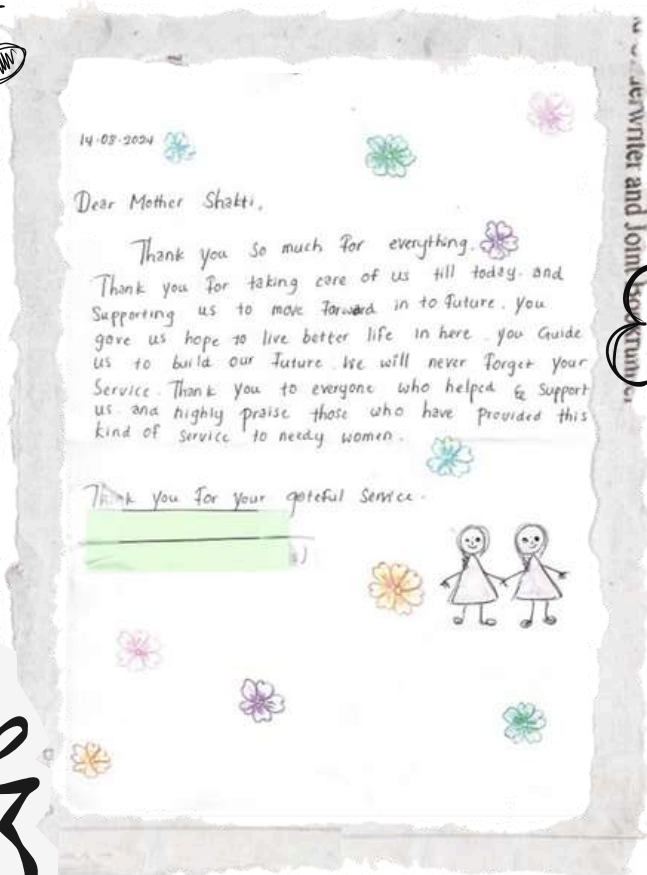 14-08-2024
Dear Mother Shakti,
Thank you so much for everything.
Thank you for taking care of us till today. and
Supporting us to move forward in to future. you
gave us hope to live better life in here. you Guide
us to build our future. We will never forget your
Service. Thank you to everyone who helped & Support
us. and highly praise those who have provided this
kind of service to needy women.
Thank you for your grateful Service.
erwriter and Joint Bookrunner